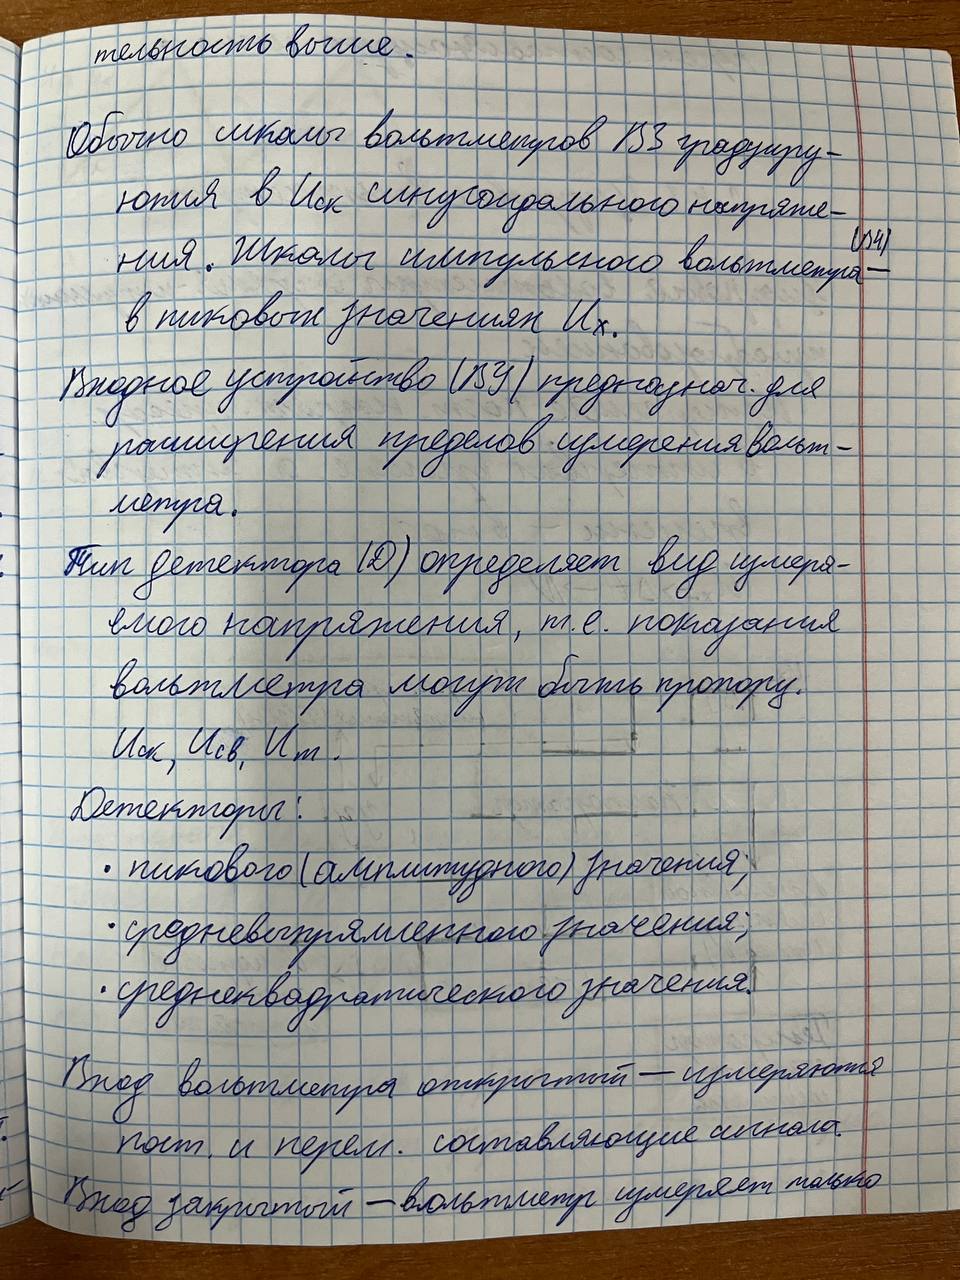 тельность выше.
Обычно шкалы вольтметров В3 градуиру-
ются в Uск синусоидального напряже-
ния. Шкалы импульсного вольтметра (В4) —
в пиковых значениях Uх.
Входное устройство (ВУ) предназнач. для
расширения пределов измерения вольт-
метра.
Тип детектора (Д) определяет вид измеря-
емого напряжения, т.е. показания
вольтметра могут быть пропорц.
Uск, Uсв, Um.
Детекторы:
• пикового (амплитудного) значения;
• средневыпрямленного значения;
• среднеквадратического значения.
Вход вольтметра открытый — измеряются
пост. и перем. составляющие сигнала.
Вход закрытый — вольтметр измеряет только